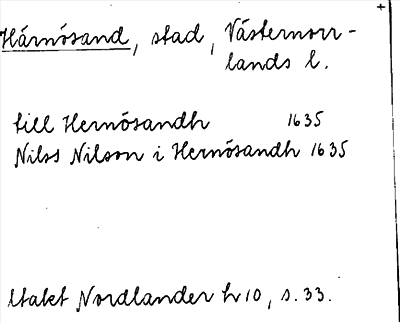 Härnösand, stad, Västernorr-
lands l.
till Hernösandh 1635
Nilss Nilson i Hernösandh 1635
Utakt Nordlander h 10, s. 33.